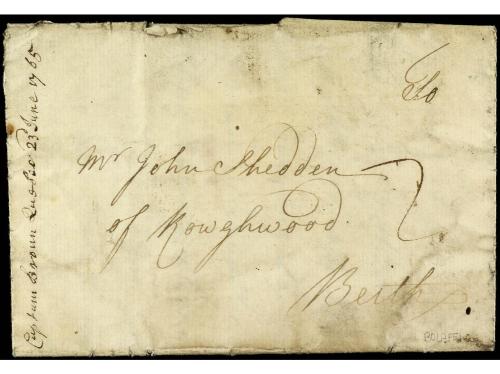 To
Mr John Shedden
of Rowghwood.
Beith
2
Captain Brown Quebec 23 June 1765